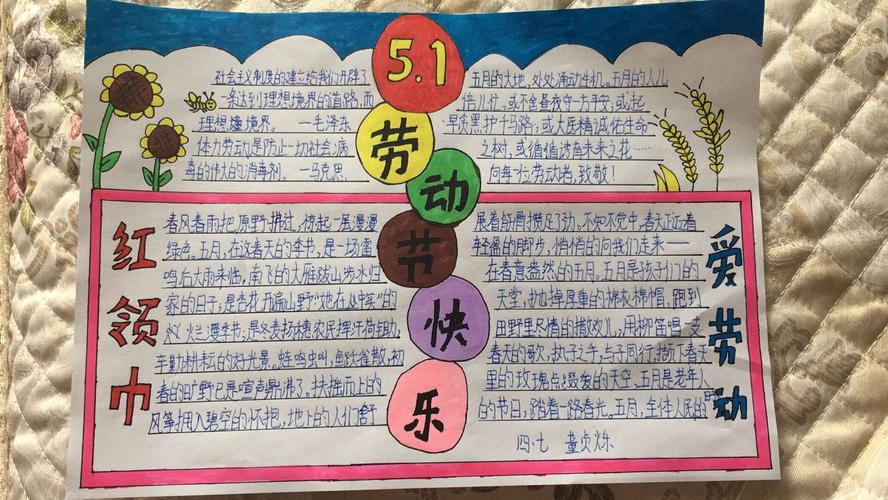 5.1
劳
动
节
快
乐
社会主义制度的建立给我们开辟了
一条达到理想境界的道路,而
理想境界。 —毛泽东
体力劳动是防止一切社会病
毒的伟大的消毒剂。—马克思
五月的大地,处处涌动生机。五月的人儿
倍儿忙。或不舍昼夜守一方平安;或起
早贪黑护千马路;或大医精诚佑生命
之树;或循循诱育未来之花……
向每一位劳动者,致敬!
红领巾
春风春雨把原野拂过,惊起一层漫漫
绿色。五月,在这春天的季书,是一场雷
鸣后大雨来临,南飞的大雁跋山涉水归
家的日子;是杏花开满山野"她在丛中笑"的
灿烂漫季节;是冬麦扬穗农民挥汗荷锄,
辛勤耕耘的好光景。蛙鸣虫叫,鱼跃雀散,初
春的旷野已是喧声鼎沸了。扶摇而上的
风筝拥入碧空的怀抱,地上的人们舒
展着筋骨攒足了劲。不知不觉中,春天正迈着
轻盈的脚步,悄悄的向我们走来——
在春意盎然的五月。五月是孩子们的
天堂,抛掉厚重的棉衣棉帽,跑到
田野里尽情的撒欢儿,用柳笛唱一支
春天的歌,执子之手,与子同行,摘下春天
里的玫瑰点缀爱的天空。五月是老年人
的节日,踏着一路春光。五月,全体人民的节
爱劳动
四.七 董贞烁